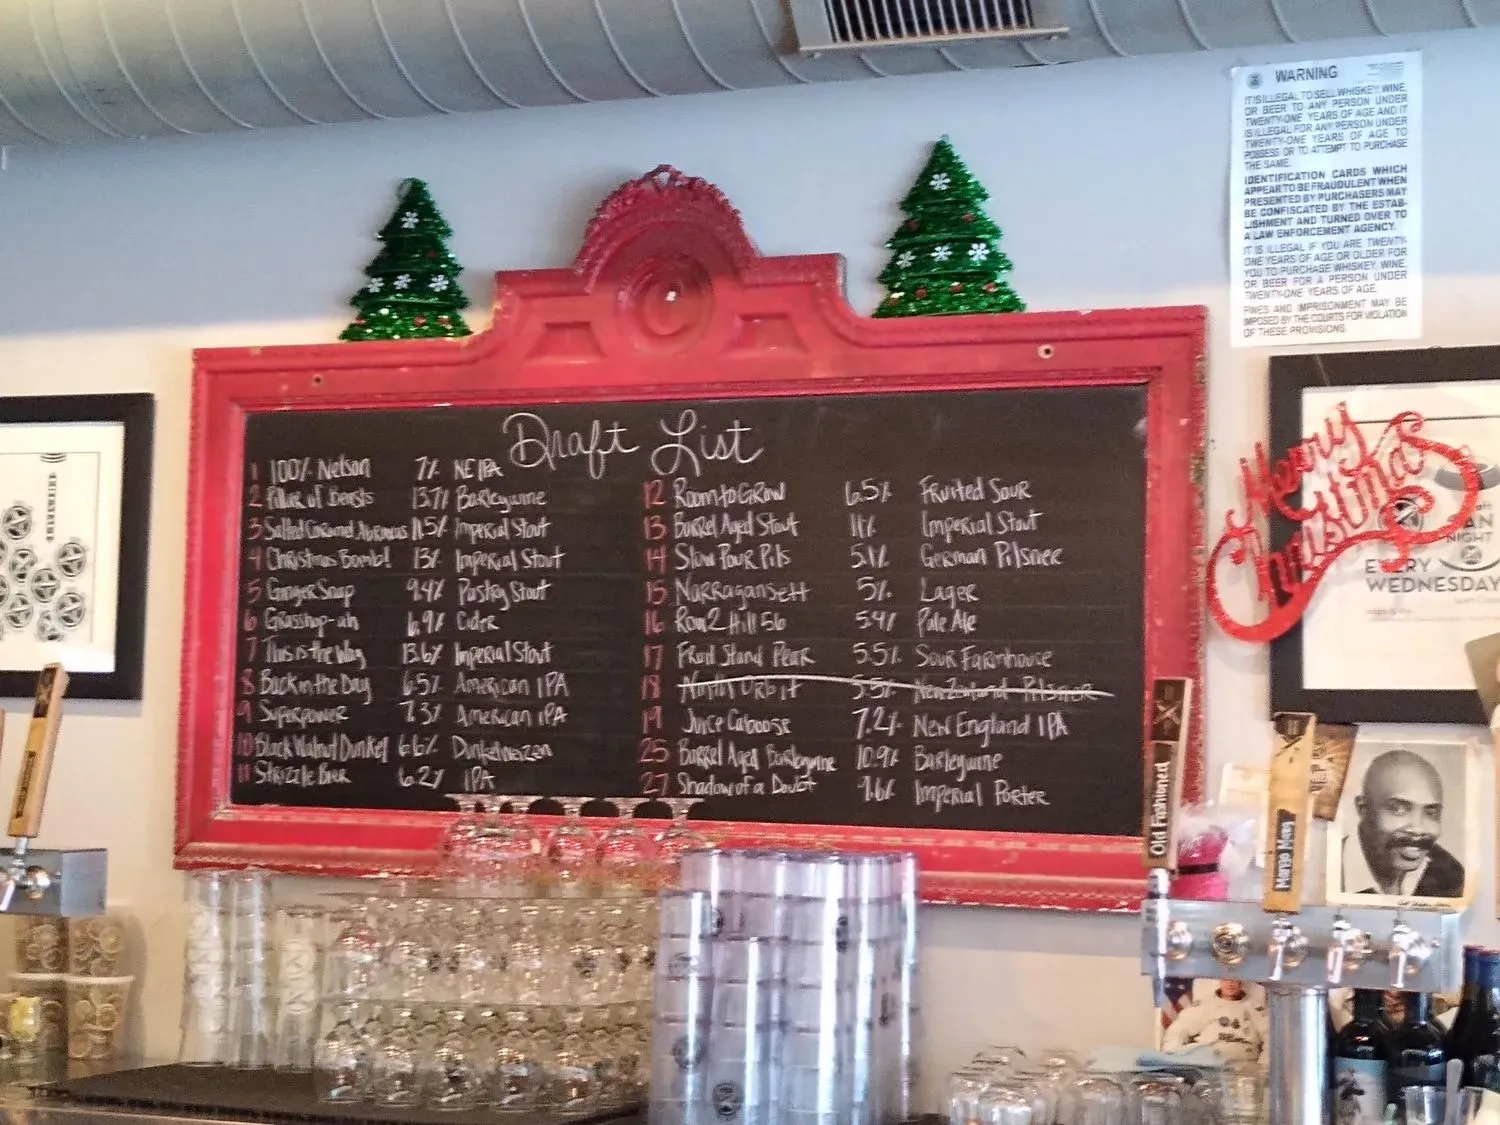 Draft List
1 100% Nelson 7% NEIPA
2 Pillar of Beasts 13.7% Barleywine
3 Salted Caramel 11.5% Imperial Stout
4 Christmas Bomb! 13% Imperial Stout
5 Ginger Snap 9.4% Pastry Stout
6 Grasshop-ah 6.9% Cider
7 This is the Way 13.6% Imperial Stout
8 Back in the Day 6.5% American IPA
9 Superpower 7.3% American IPA
10 Black Walnut Dunkel 6.6% Dunkelweizen
11 Strizzle Bier 6.2% IPA
12 Room to Grow 6.5% Fruited Sour
13 Barrel Aged Stout 11% Imperial Stout
14 Slow Pour Pils 5.1% German Pilsner
15 Narragansett 5% Lager
16 Row 2 Hill 56 5.4% Pale Ale
17 Fruit Stand Pear 5.5% Sour Farmhouse
18 North Orbit 5.5% New Zealand Pilsner
19 Juice Caboose 7.2% New England IPA
25 Barrel Aged Barleywine 10.9% Barleywine
27 Shadow of a Doubt 9.6% Imperial Porter
WARNING
IT IS ILLEGAL TO SELL WHISKEY, WINE,
OR BEER TO ANY PERSON UNDER
TWENTY-ONE YEARS OF AGE AND IT
IS ILLEGAL FOR ANY PERSON UNDER
TWENTY-ONE YEARS OF AGE TO
POSSESS OR TO ATTEMPT TO PURCHASE
THE SAME.
IDENTIFICATION CARDS WHICH
APPEAR TO BE FRAUDULENT WHEN
PRESENTED BY PURCHASERS MAY
BE CONFISCATED BY THE ESTAB-
LISHMENT AND TURNED OVER TO
A LAW ENFORCEMENT AGENCY.
IT IS ILLEGAL IF YOU ARE TWENTY-
ONE YEARS OF AGE OR OLDER FOR
YOU TO PURCHASE WHISKEY, WINE,
OR BEER FOR A PERSON UNDER
TWENTY-ONE YEARS OF AGE.
FINES AND IMPRISONMENT MAY BE
IMPOSED BY THE COURTS FOR VIOLATION
OF THESE PROVISIONS.
Merry
Christmas
NIGHT
EVERY
WEDNESDAY
Old Fashioned
Mango Mary